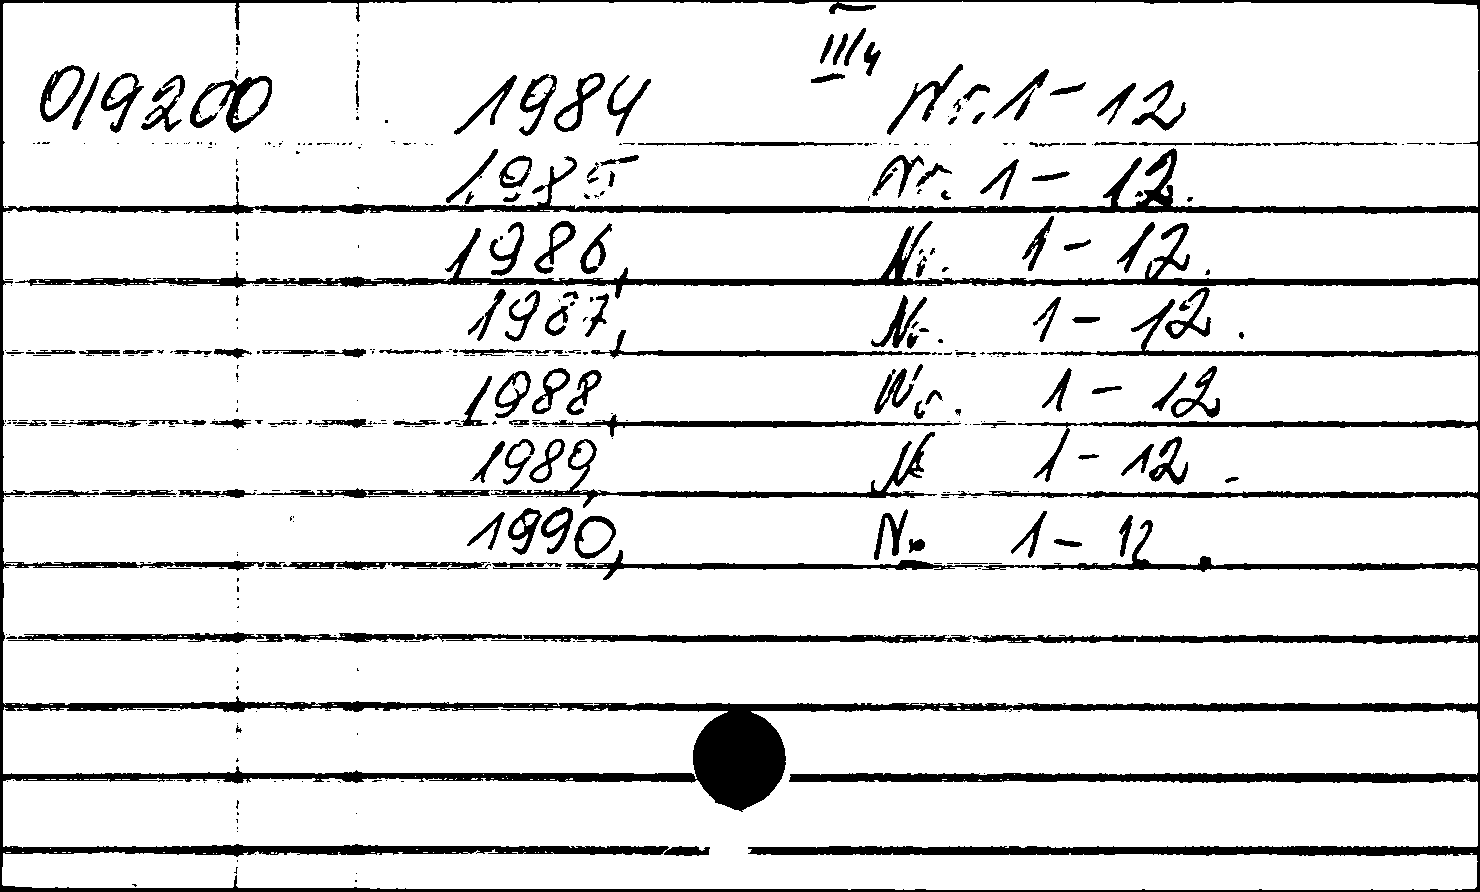 III/4
019200 1984 Nr. 1 - 12
1985 Nr. 1 - 12.
1986, Nr. 1 - 12.
1987, Nr. 1 - 12.
1988, Nr. 1 - 12
1989, Nr 1 - 12.
1990, Nr. 1 - 12.